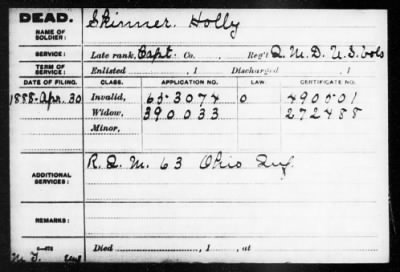 DEAD.
NAME OF SOLDIER: Skinner. Holly
SERVICE: Late rank, Capt. Co. , Reg't Q. M. D. U. S. Vols
TERM OF SERVICE: Enlisted , 1 Discharged , 1
DATE OF FILING. CLASS. APPLICATION NO. LAW. CERTIFICATE NO.
1888-Apr. 30 Invalid, 653074 0 490501
Widow, 390033 272488
Minor,
ADDITIONAL SERVICES: R. Q. M. 63 Ohio Inf.
REMARKS:
Died , 1 , at